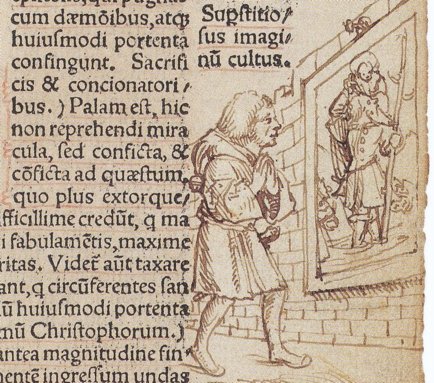 cum dæmōibus, atq;
huiuſmodi portenta
confingunt. Sacrifi
cis & concionatori/
bus.) Palam eſt, hic
non reprehendi mira
cula, ſed conficta, &
cōficta ad quæſtum,
quo plus extorque/
fficillime credūt, q ma
i fabulamētis, maxime
ritas. Videt̄ aūt taxare
ant, q circūferentes ſan
ū huiuſmodi portenta
mū Chriſtophorum.)
antea magnitudine fin/
mentē ingreſſum undas
Supſtitio/
ſus imagi/
nū cultus.